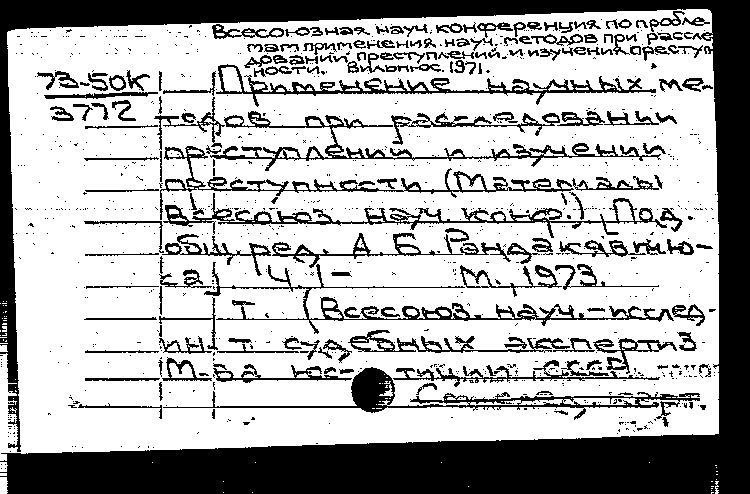 Всесоюзная науч. конференция по пробле-
мам применения науч. методов при рассле
довании преступлений и изучения преступ
ности. Вильнюс 1971.
73-50К
3772
Применение научных ме-
тодов при расследовании
преступлений и изучении
преступности. (Материалы
Всесоюз. науч. конф.) [Под.
общ. ред. А. Б. Рандакявтню-
са] Ч. 1- М., 1973.
т. (Всесоюз. науч.-исслед-
ин-т судебных экспертиз
М-ва юс- тиции СССР
След. карт.